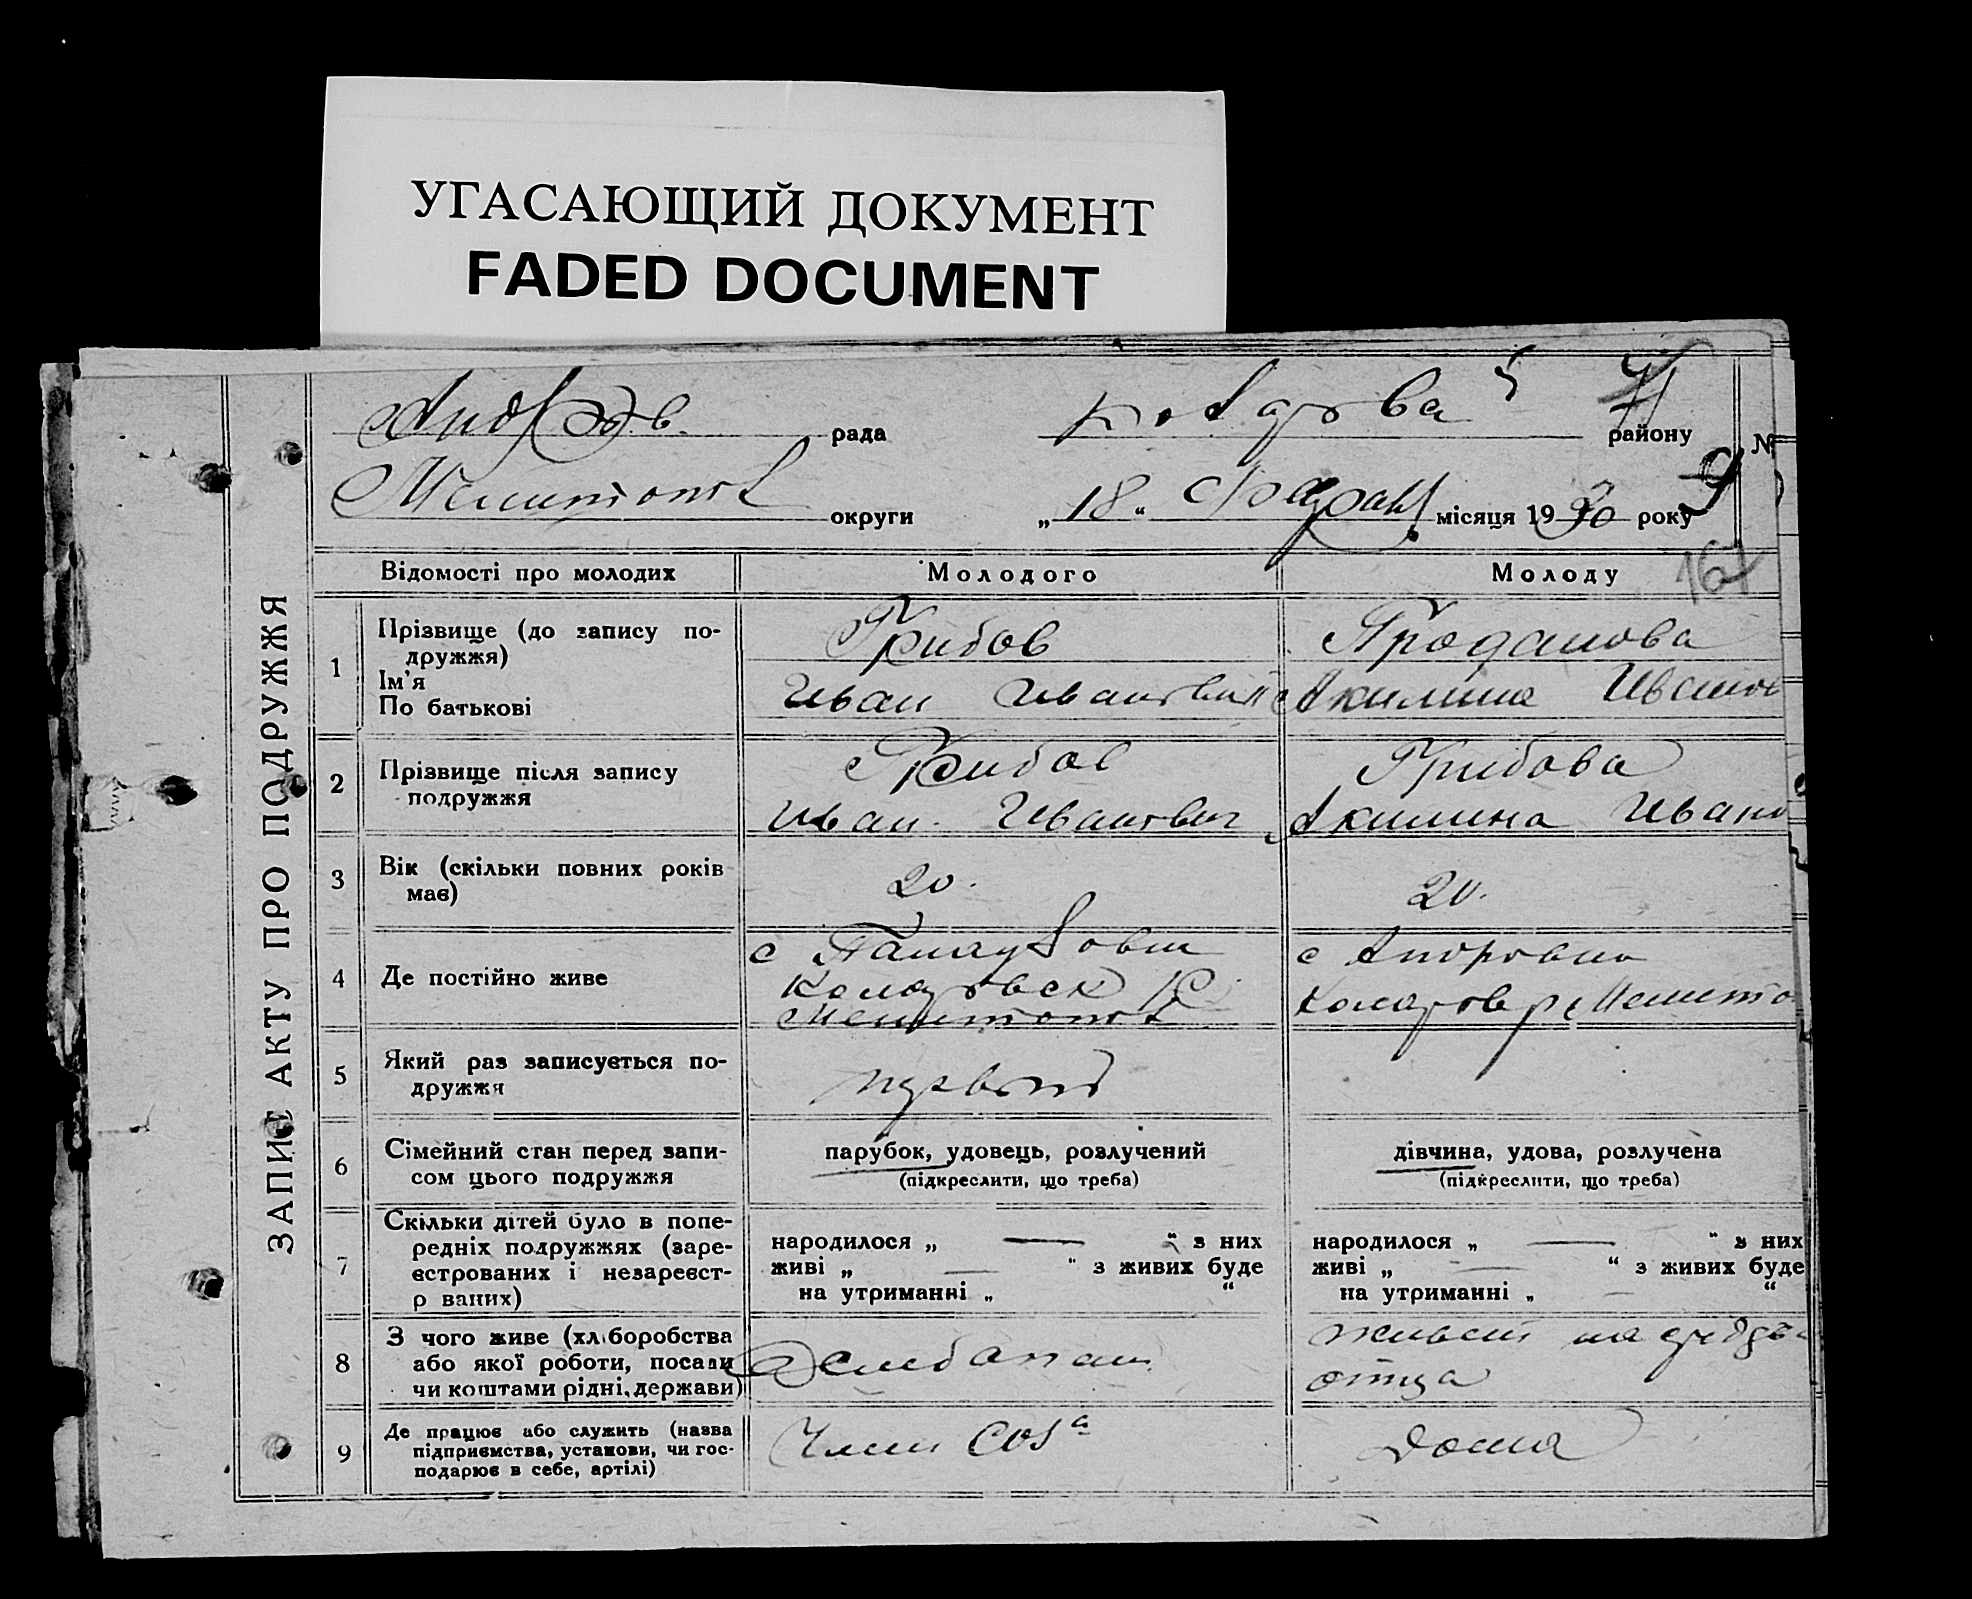 УГАСАЮЩИЙ ДОКУМЕНТ
FADED DOCUMENT
рада
району
№
Мелитопол
округи
„ 18 “ місяця 1930 року
9
167
ЗАПИС АКТУ ПРО ПОДРУЖЖЯ
Відомості про молодих Молодого Молоду
1 Прізвище (до запису по-
дружжя)
Ім'я
По батькові
Грибов
Иван Иванович
Проданова
Акилина Иванов
2 Прізвище після запису
подружжя
Грибов
Иван Иванович
Грибова
Акилина Ивано
3 Вік (скільки повних років
має)
20.
20.
4 Де постійно живе
с
Мелитопол
с
Мелито
5 Який раз записується по-
дружжя
первый
6 Сімейний стан перед запи-
сом цього подружжя
парубок, удовець, розлучений
(підкреслити, що треба)
дівчина, удова, розлучена
(підкреслити, що треба)
7 Скільки дітей було в попе-
редніх подружжях (заре-
єстрованих і незареєст-
р ваних)
народилося „ — “ з них
живі „ — “ з живих буде
на утриманні „ “
народилося „ — “ з них
живі „ — “ з живих буде
на утриманні „ — “
8 З чого живе (хліборобства
або якої роботи, посади
чи коштами рідні, держави)
живет на
отца
9 Де працює або служить (назва
підприємства, установи, чи гос-
подарює в себе, артілі)
Член СОЗа
Дома